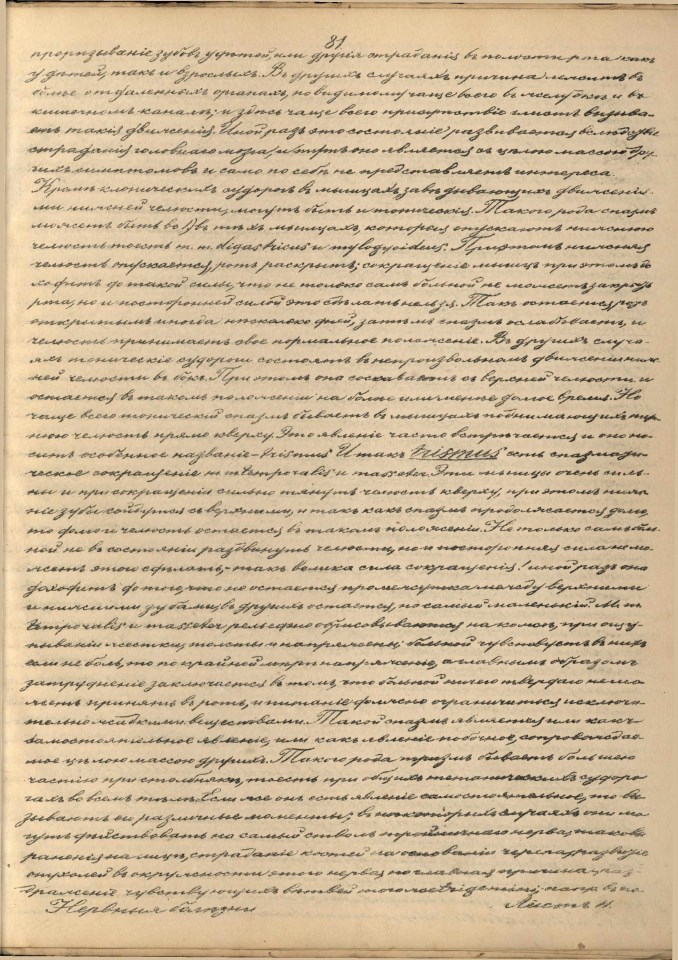 81
прорѣзываніе зубовъ у дѣтей, или другія страданія въ полости рта какъ
у дѣтей, такъ и взрослыхъ. Въ другихъ случаяхъ причина лежитъ въ
болѣе отдаленныхъ органахъ, по видимому чаще всего въ желудкѣ и въ
кишечномъ каналѣ; и здѣсь чаще всего присутствіе глистъ вызыва-
етъ такія движенія. Иной разъ это состояніе развивается вслѣдствіе
страданія головнаго мозга, и тутъ оно является съ цѣлою массою дру-
гихъ симптомовъ и само по себѣ не представляетъ интереса.
Кромѣ клоническихъ судорогъ въ мышцахъ завѣдывающихъ движенія-
ми нижней челюсти, могутъ быть и тоническія. Такого рода спазмъ
можетъ быть во 1) въ тѣхъ мышцахъ, которыя опускаютъ нижнюю
челюсть то есть m. m. digastricus и mylogyoideus. При этомъ нижняя
челюсть опускается, ротъ раскрытъ; сокращеніе мышцъ при этомъ до-
ходитъ до такой силы, что не только самъ больной не можетъ закрыть
рта, но и посторонней силой это сдѣлать нельзя. Такъ остается ротъ
открытымъ иногда нѣсколько дней, затѣмъ спазмъ ослабѣваетъ, и
челюсть принимаетъ свое нормальное положеніе. Въ другихъ случа-
яхъ тоническіе судороги состоятъ въ непроизвольномъ движеніи ниж-
ней челюсти въ бокъ. При этомъ она соскакиваетъ съ верхней челюсти и
остается въ такомъ положеніи на болѣе или менѣе долгое время. Но
чаще всего тоническій спазмъ бываетъ въ мышцахъ поднимающихъ ниж-
нюю челюсть прямо кверху. Это явленіе часто встрѣчается и оно но-
ситъ особенное названіе - trismus. И такъ trismus есть спазмоди-
ческое сокращеніе m. m temporalis и masseter. Эти мышцы очень силь-
ны и при сокращеніи сильно тянутъ челюсть кверху, при этомъ ниж-
ніе зубы сойдутся съ верхними, и такъ какъ спазмъ продолжается долго,
то долго и челюсть остается въ такомъ положеніи. Не только самъ боль-
ной не въ состояніи раздвинуть челюсти, но и посторонняя сила не мо-
жетъ этого сдѣлать, - такъ велика сила сокращенія! иной разъ она
доходитъ до того, что не остается промежутка между верхними
и нижними зубами; въ другихъ остается, но самый маленькій. M. m.
temporalis и masseter рельефно обрисовываются на кожѣ, при ощу-
пываніи жестки, толсты и напряжены; больной чувствуетъ въ нихъ
если не боль, то по крайней мѣрѣ напряженіе, а главнымъ образомъ
затрудненіе заключается въ томъ, что больной ничего твердаго не мо-
жетъ принять въ ротъ, и питанье должно ограничиться исключи-
тельно жидкими веществами. Такой спазмъ является или какъ
самостоятельное явленіе, или какъ явленіе побочное, сопровождае-
мое цѣлою массою другихъ. Такого рода тризмъ бываетъ большею
частію при столбнякѣ, то есть при общихъ тетаническихъ судоро-
гахъ во всемъ тѣлѣ. Если же онъ есть явленіе самостоятельное, то вы-
зываютъ его различные моменты; въ нѣкоторыхъ случаяхъ они мо-
гутъ дѣйствовать на самый стволъ тройничнаго нерва, таковы
раненія на лицѣ, страданіе костей на основаніи черепа, развитіе
опухолей въ окружности этого нерва; но главная причина - раз-
драженіе чувствующихъ вѣтвей того же trigemini;
Нервныя болѣзни
Листъ 11.